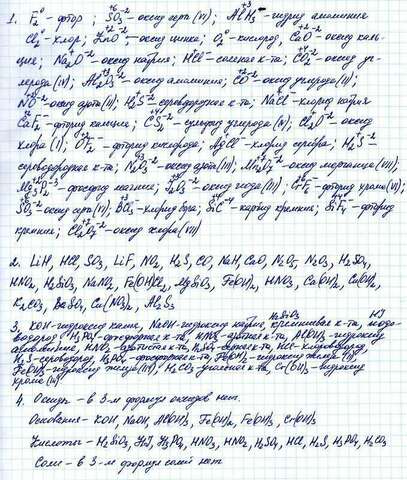 1. F₂⁰ - фтор ; SO₃ - оксид серы (VI) ; AlH₃ - гидрид алюминия
Cl₂⁰ - хлор ; ZnO - оксид цинка ; O₂⁰ - кислород, CaO - оксид каль-
ция ; Na₂O - оксид натрия ; HCl - соляная к-та ; CO₂ - оксид уг-
лерода (IV) ; Al₂O₃ - оксид алюминия ; CO - оксид углерода (II) ;
NO - оксид азота (II) ; H₂S - сероводородная к-та ; NaCl - хлорид натрия
CaF₂ - фторид кальция ; CS₂ - сульфид углерода (IV) ; Cl₂O - оксид
хлора (I) ; OF₂ - фторид кислорода ; AgCl - хлорид серебра ; H₂S -
сероводородная к-та ; N₂O₃ - оксид азота (III) ; Mn₂O₇ - оксид марганца (VII) ;
Mg₃P₂ - фосфид магния ; - оксид (III) ; CrF₆ - фторид хрома (VI) ;
SO₂ - оксид серы (IV) ; BCl₃ - хлорид бора ; SiC - карбид кремния ; SiF₄ - фторид
кремния ; Cl₂O₇ - оксид хлора (VII)
2. LiH, HCl, SO₃, LiF, NO₂, H₂S, CO, NaH, CaO, N₂O₅, N₂O₃, H₂SO₄,
HNO₂, H₂SiO₃, NaNO₃, Fe(OH)Cl₂, MgSiO₃, Fe(OH)₂, HNO₃, Ca(OH)₂, Cu(OH)₂,
K₂CO₃, BaSO₄, Cu(NO₃)₂, Al₂S₃
H₂SiO₃ HI
3. KOH - гидроксид калия, NaOH - гидроксид натрия, кремниевая к-та, иодо-
водород, H₃PO₄ - фосфорная к-та, HNO₃ - азотная к-та, Al(OH)₃ - гидроксид
алюминия, HNO₂ - азотистая к-та, H₂SO₄ - серная к-та, HCl - хлороводород,
H₂S - сероводород, H₃PO₄ - фосфорная к-та, Fe(OH)₂ - гидроксид железа (II),
Fe(OH)₃ - гидроксид железа (III), H₂CO₃ - угольная к-та, Cr(OH)₃ - гидроксид
хрома (III)
4. Оксиды - в 3-м формул оксидов нет.
Основания - KOH, NaOH, Al(OH)₃, Fe(OH)₂, Fe(OH)₃, Cr(OH)₃
Кислоты - H₂SiO₃, HI, H₃PO₄, HNO₃, HNO₂, H₂SO₄, HCl, H₂S, H₃PO₄, H₂CO₃
Соли - в 3-м формул солей нет